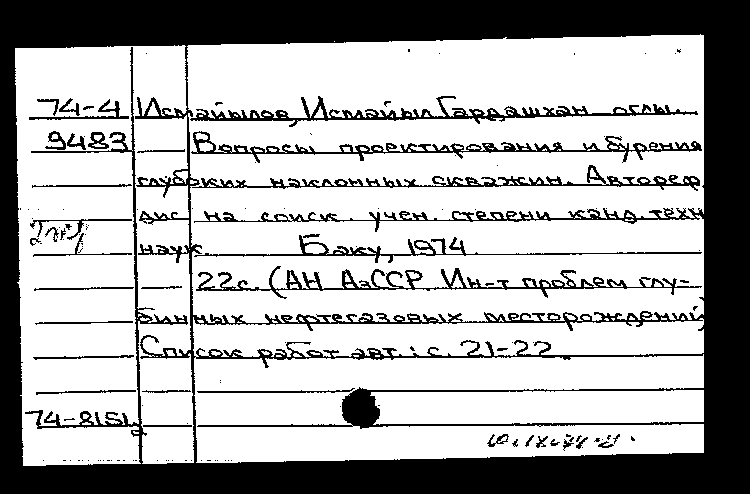 74-4 Исмайылов, Исмайыл Гардашхан оглы.
9483 Вопросы проектирования и бурения
глубоких наклонных скважин. Автореф.
дис. на соиск. учен. степени канд. техн.
наук. Баку, 1974.
22с. (АН АзССР. Ин-т проблем глу-
бинных нефтегазовых месторождений)
Список работ авт.: с. 21-22.
74-8151